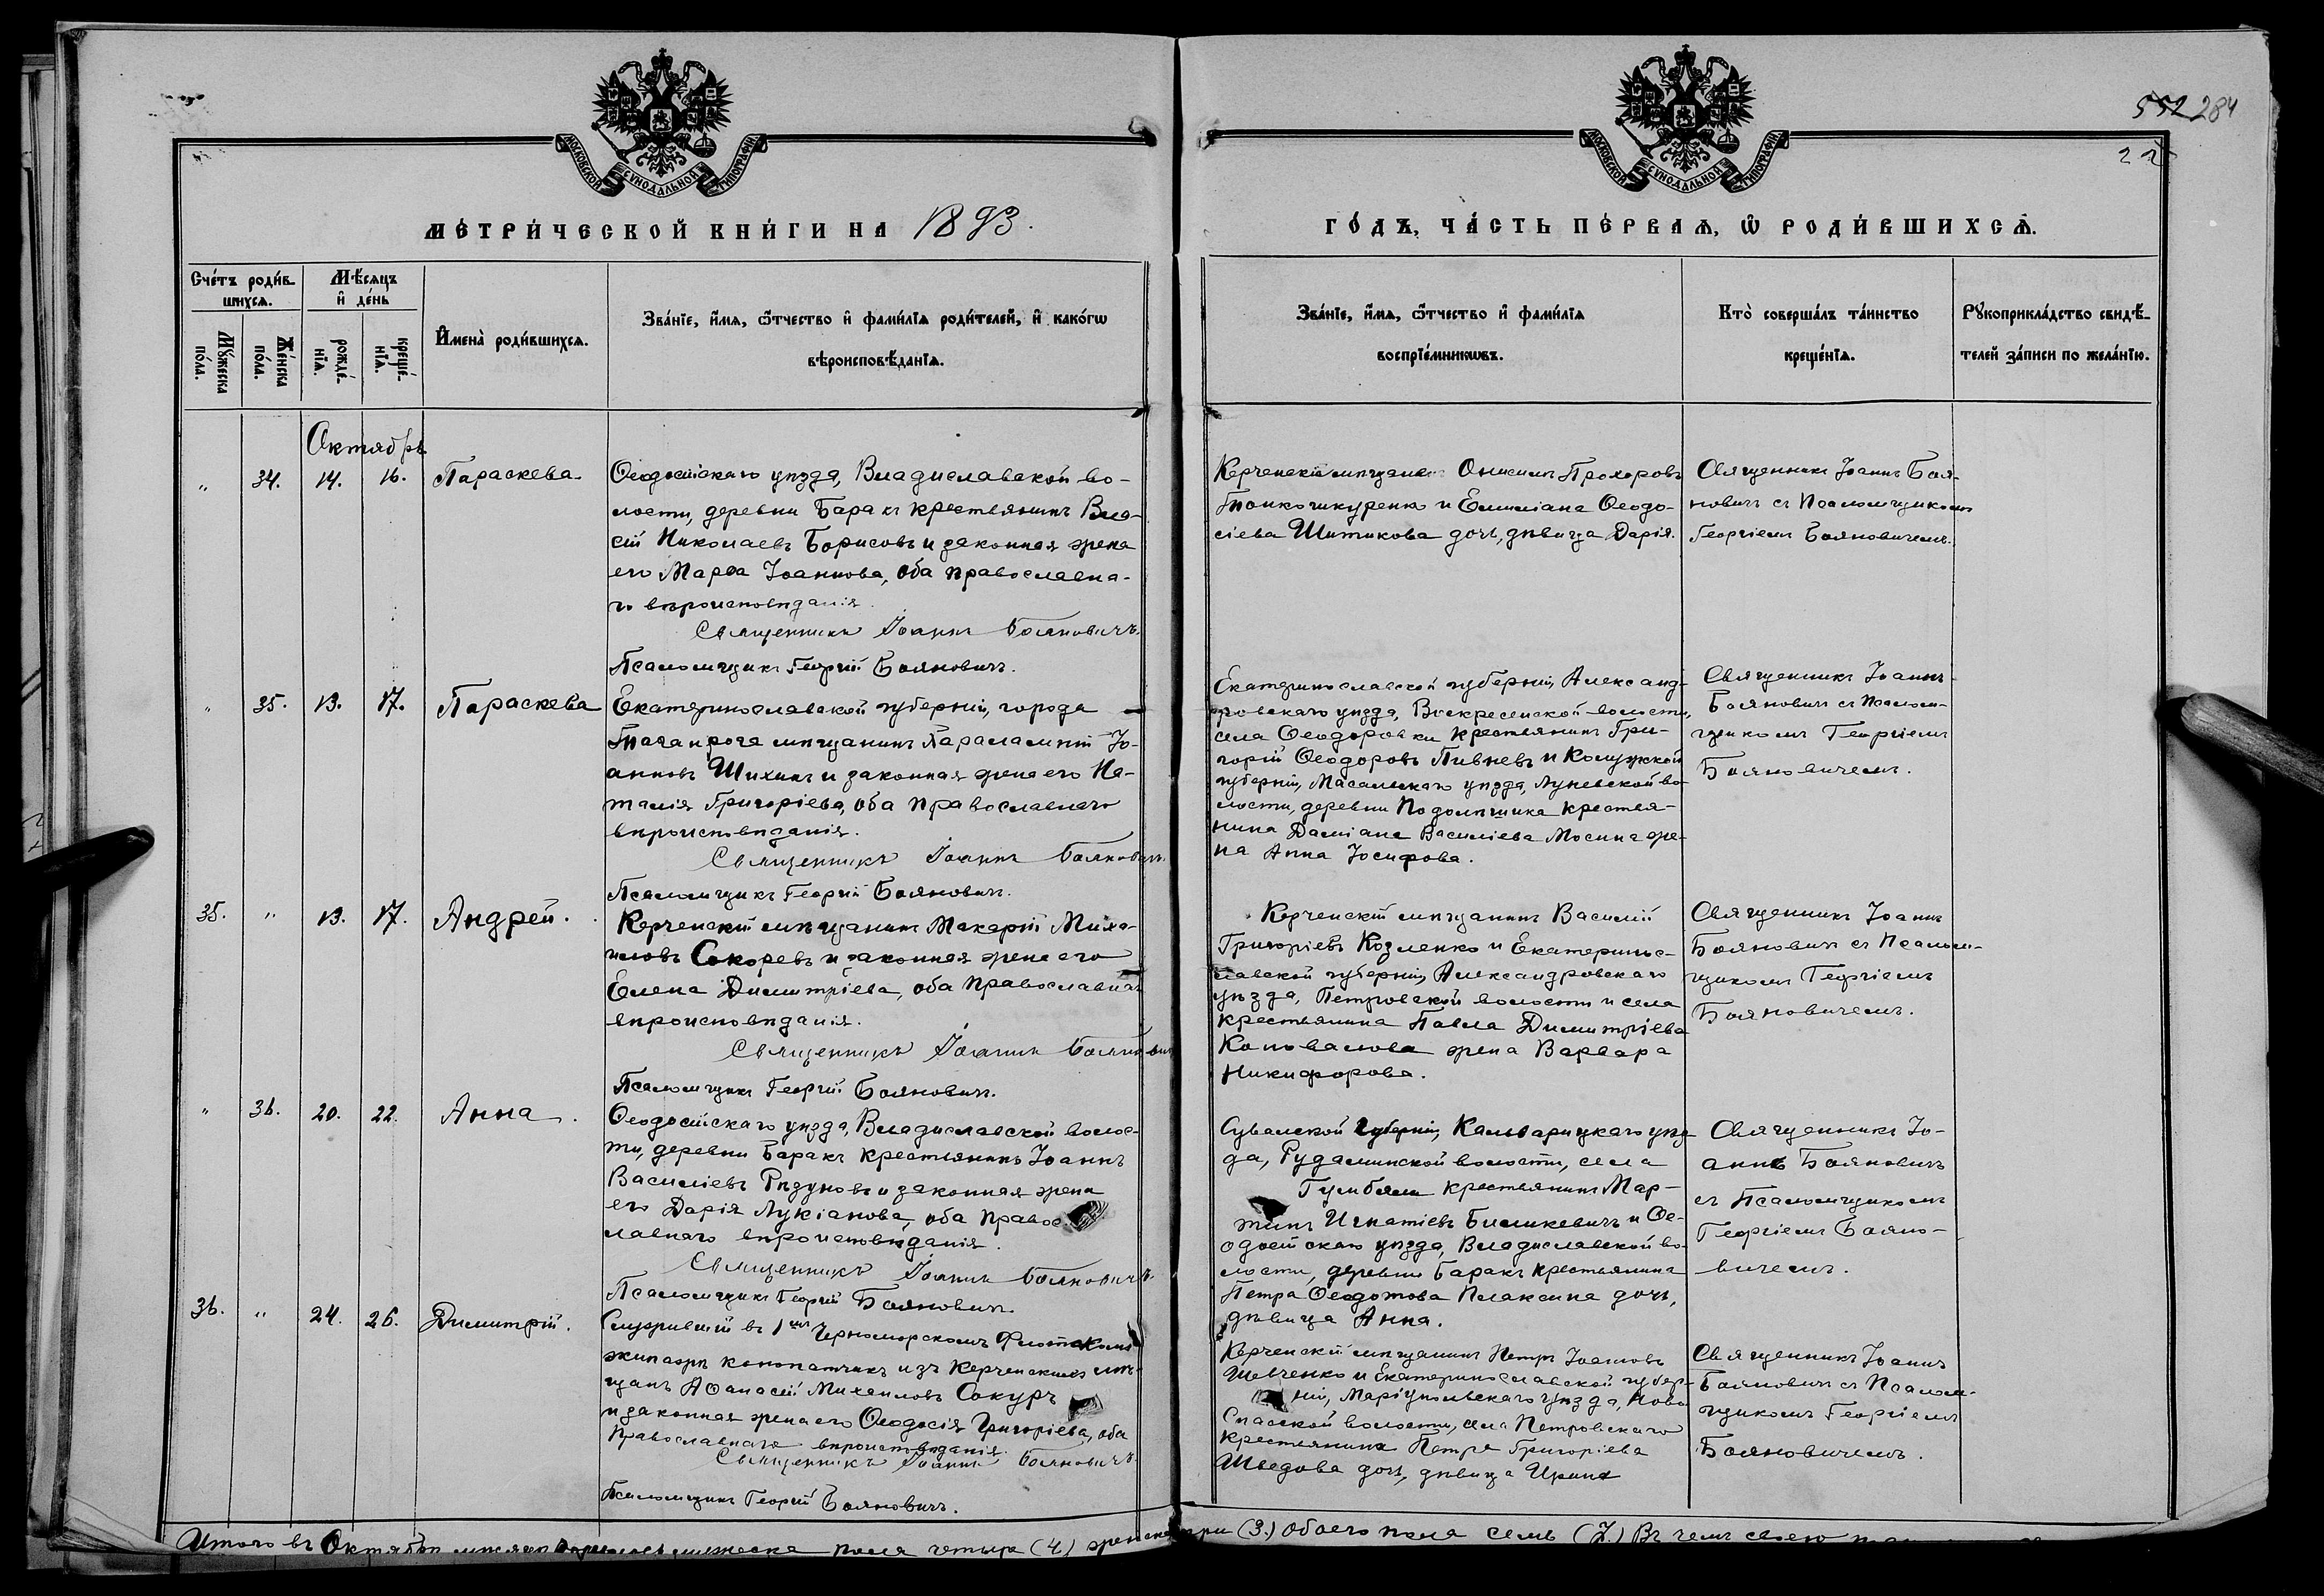 552 284
22
МОСКОВСКОЙ СУНОДАЛЬНОЙ ТИПОГРАФІИ
МОСКОВСКОЙ СУНОДАЛЬНОЙ ТИПОГРАФІИ
МЕТРИ́ЧЕСКОЙ КНИ́ГИ НА 1893.
ГО́ДЪ, ЧА́СТЬ ПЕ́РВАѦ, Ѡ РОДИ́ВШИХСѦ.
Сче́тъ роди́в-
шихсѧ.
Му́жеска по́ла.
Же́нска по́ла.
Мѣ́сяцъ и де́нь
рожде́-нїѧ.
креще́-нїѧ.
Имена̀ роди́вшихсѧ.
Зва́нїе, и́мѧ, ѻ҆́тчество и фами́лїѧ роди́телей, и како́гѡ
вѣроисповѣ́данїѧ.
Зва́нїе, и́мѧ, ѻ҆́тчество и фами́лїѧ
воспрїе́мникѡвъ.
Кто̀ соверша́лъ та́инство
креще́нїѧ.
Рꙋкоприкла́дство свидѣ́-
телей за́писи по жела́нїю.
Октябрь
„ 34. 14. 16. Параскева
Ѳеодосійскаго уѣзда, Владиславской во-
лости, деревни Баракъ крестьянинъ Вла-
сій Николаевъ Борисовъ и законная жена
его Марѳа Іоаннова, оба православна-
го вѣроисповѣданія.
Священникъ Іоаннъ Бояновичъ.
Псаломщикъ Георгій Бояновичъ.
Керченскій мѣщанинъ Онисимъ Прохоровъ
Тонкошкуренко и Емиліана Ѳеодо-
сіева Шитикова дочь, дѣвица Дарія.
Священникъ Іоаннъ Боя-
новичъ съ Псаломщикомъ
Георгіемъ Бояновичемъ.
„ 35. 13. 17. Параскева
Екатеринославской губерніи, города
Таганрога мѣщанинъ Харалампій Іо-
анновъ Шихинъ и законная жена его На-
талія Григоріева, оба православнаго
вѣроисповѣданія.
Священникъ Іоаннъ Бояновичъ
Псаломщикъ Георгій Бояновичъ.
Екатеринославской губерніи, Александ-
ровскаго уѣзда, Воскресенской волости,
села Ѳеодоровки крестьянинъ Гри-
горій Ѳеодоровъ Пивневъ и Калужской
губерніи, Масальскаго уѣзда, Луневской во-
лости, деревни крестья-
нина Даміана Василіева Мосина же-
на Анна Іосифова.
Священникъ Іоаннъ
Бояновичъ съ Псалом-
щикомъ Георгіемъ
Бояновичемъ.
35. „ 13. 17. Андрей.
Керченскій мѣщанинъ Макарій Миха-
иловъ Сокоревъ и законная жена его
Елена Димитріева, оба православнаго
вѣроисповѣданія.
Священникъ Іоаннъ Бояновичъ
Псаломщикъ Георгій Бояновичъ.
Керченскій мѣщанинъ Василій
Григоріевъ Козленко и Екатерино-
славской губерніи, Александровскаго
уѣзда, Петровской волости и села
крестьянина Павла Димитріева
Коновалова жена Варвара
Никифорова.
Священникъ Іоаннъ
Бояновичъ съ Псалом-
щикомъ Георгіемъ
Бояновичемъ.
„ 36. 20. 22. Анна.
Ѳеодосійскаго уѣзда, Владиславской волос-
ти, деревни Баракъ крестьянинъ Іоаннъ
Василіевъ Рѣзуновъ и законная жена
его Дарія Лукіанова, оба правос-
лавнаго вѣроисповѣданія.
Священникъ Іоаннъ Бояновичъ.
Псаломщикъ Георгій Бояновичъ.
Сувалской губерніи, Кальварицкаго уѣз-
да, Рудаминской волости, села
крестьянинъ Мар-
тинъ Игнатіевъ и Ѳе-
одосійскаго уѣзда, Владиславской во-
лости, деревни Баракъ крестьянина
Петра Ѳеодотова Плаксина дочь,
дѣвица Анна.
Священникъ Іо-
аннъ Бояновичъ
съ Псаломщикомъ
Георгіемъ Бояно-
вичемъ.
36. „ 24. 26. Димитрій.
Служившій въ 1мъ Черноморскомъ флотскомъ
экипажѣ конопатчикъ изъ Керченскихъ мѣ-
щанъ Аѳанасій Михаиловъ Сокуръ
и законная жена его Ѳеодосія Григоріева, оба
православнаго вѣроисповѣданія.
Священникъ Іоаннъ Бояновичъ.
Псаломщикъ Георгій Бояновичъ.
Керченскій мѣщанинъ Петръ Іоанновъ
Шевченко и Екатеринославской губер-
ніи, Маріупольскаго уѣзда, Ново-
Спасской волости, села Петровскаго
крестьянина Петра Григоріева
Шведова дочь, дѣвица Ирина
Священникъ Іоаннъ
Бояновичъ съ Псалом-
щикомъ Георгіемъ
Бояновичемъ.
Итого въ Октябрѣ мѣсяцѣ родилось мужеска пола четыре (4) женска три (3.) обоего пола семь (7.) Въ чемъ своею